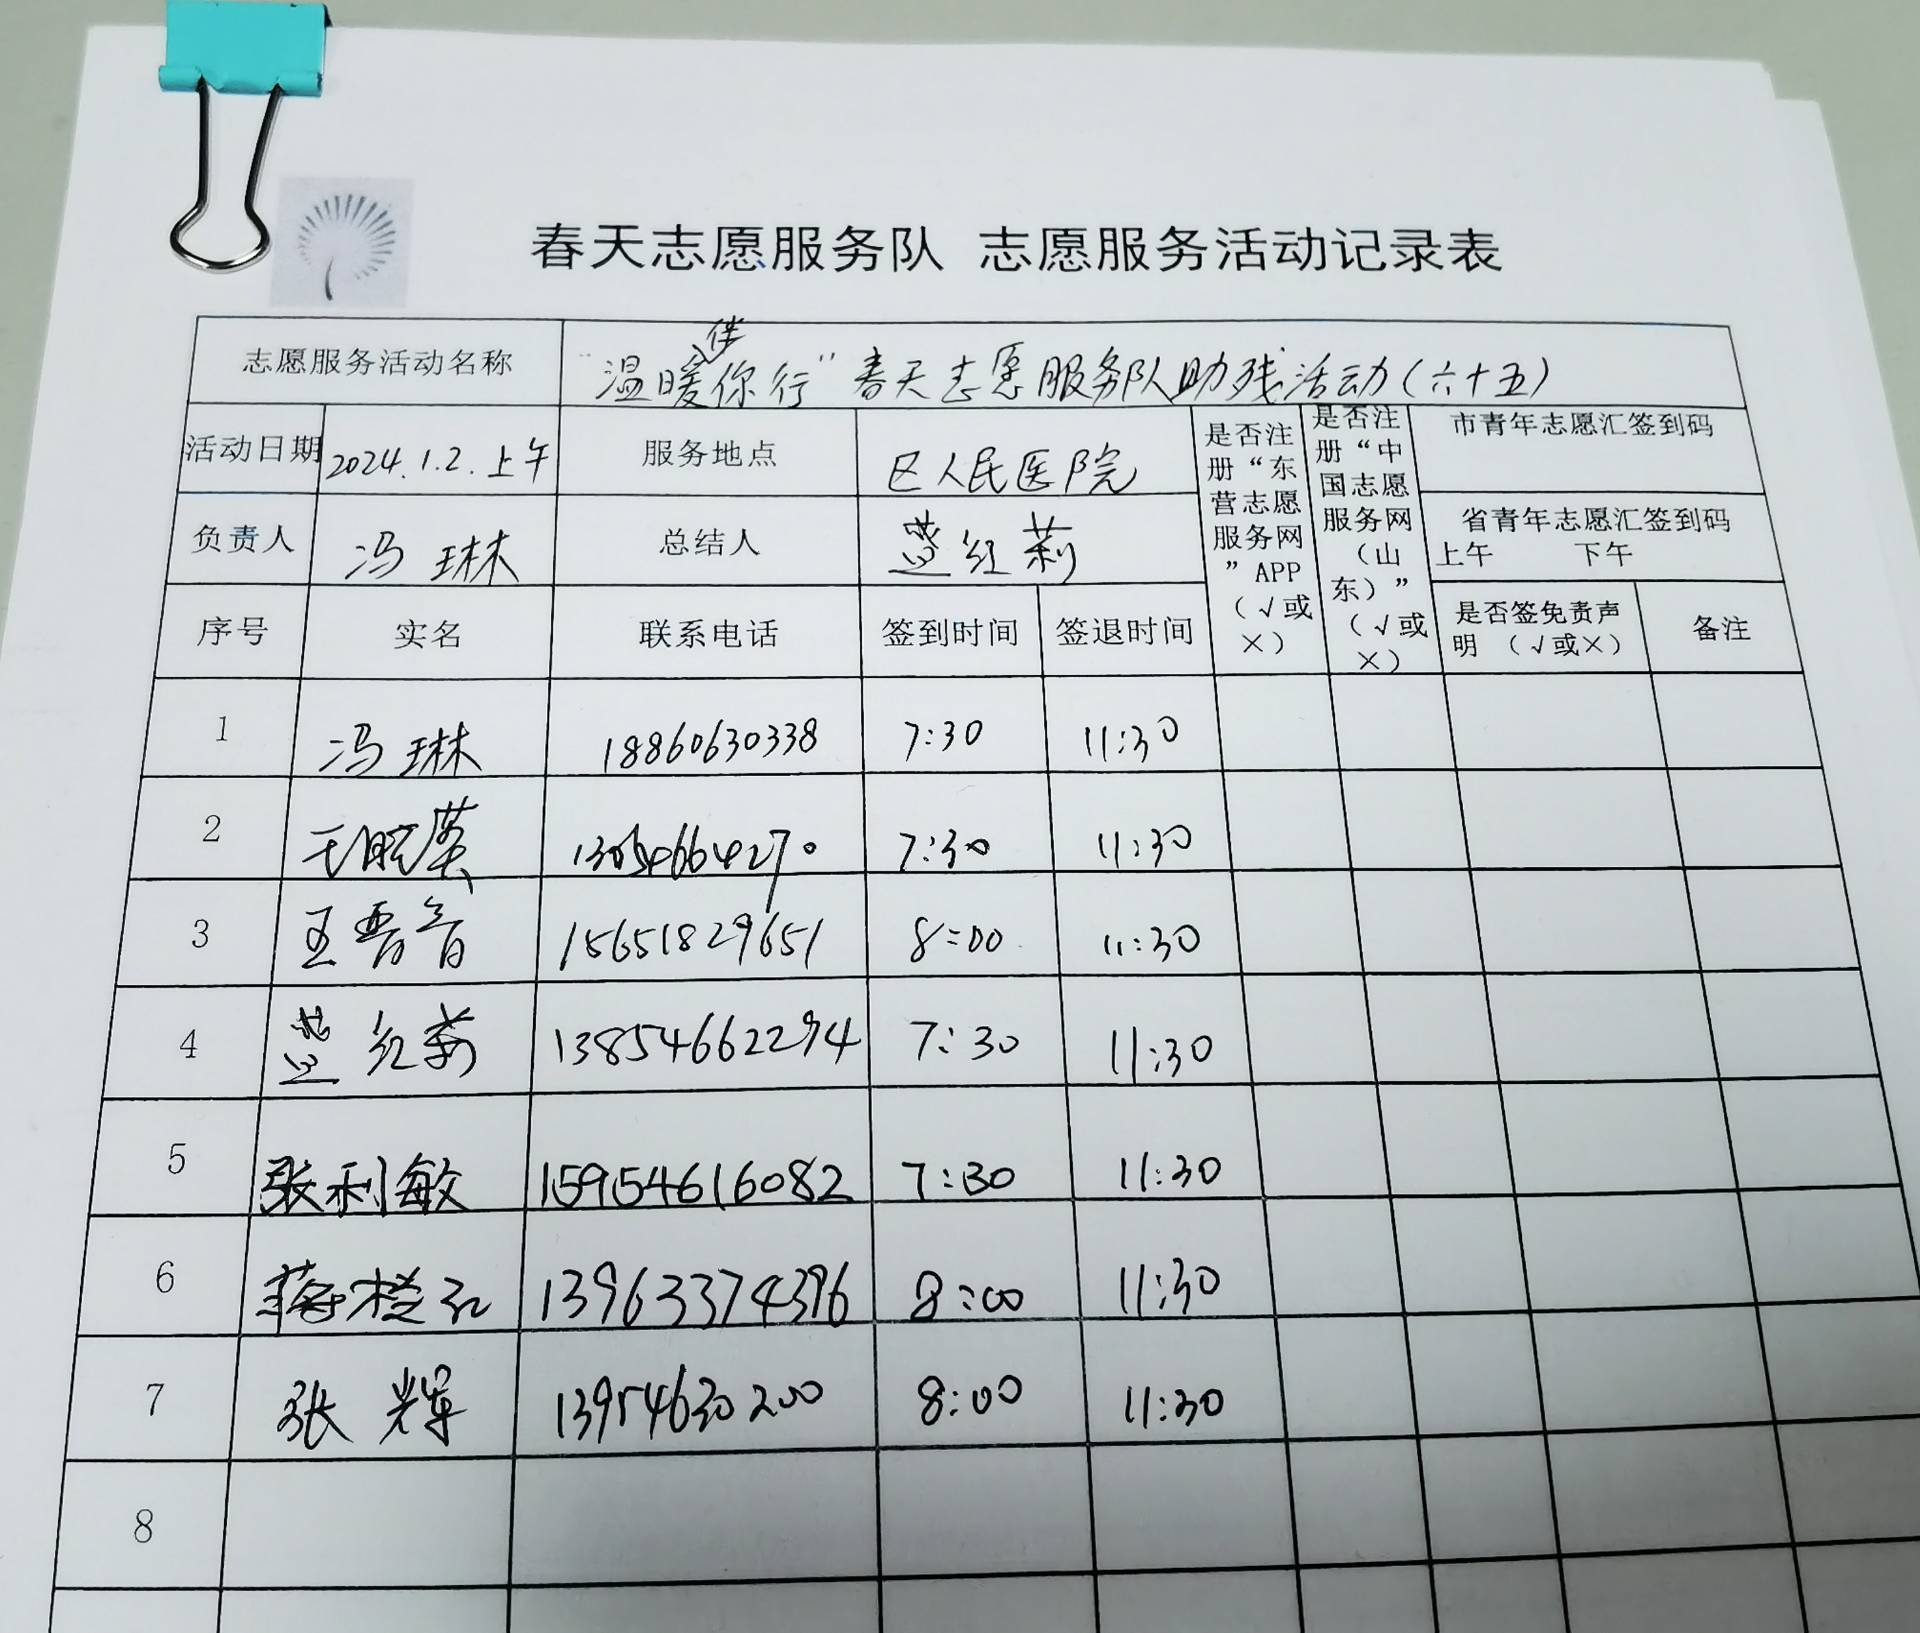 春天志愿服务队 志愿服务活动记录表
志愿服务活动名称 “温暖伴你行”春天志愿服务队助残活动(六十五)
活动日期 2024.1.2.上午 服务地点 区人民医院 是否注册“东营志愿服务网”APP（√或×） 是否注册“中国志愿服务网（山东）”（√或×） 市青年志愿汇签到码
负责人 冯琳 总结人 红莉 省青年志愿汇签到码 上午 下午
序号 实名 联系电话 签到时间 签退时间 是否签免责声明（√或×） 备注
1 冯琳 18860630338 7:30 11:30
2 13054664270 7:30 11:30
3 王晋音 15651829651 8:00 11:30
4 红莉 13854662294 7:30 11:30
5 张利敏 15954616082 7:30 11:30
6 13963374396 8:00 11:30
7 张辉 13954630200 8:00 11:30
8